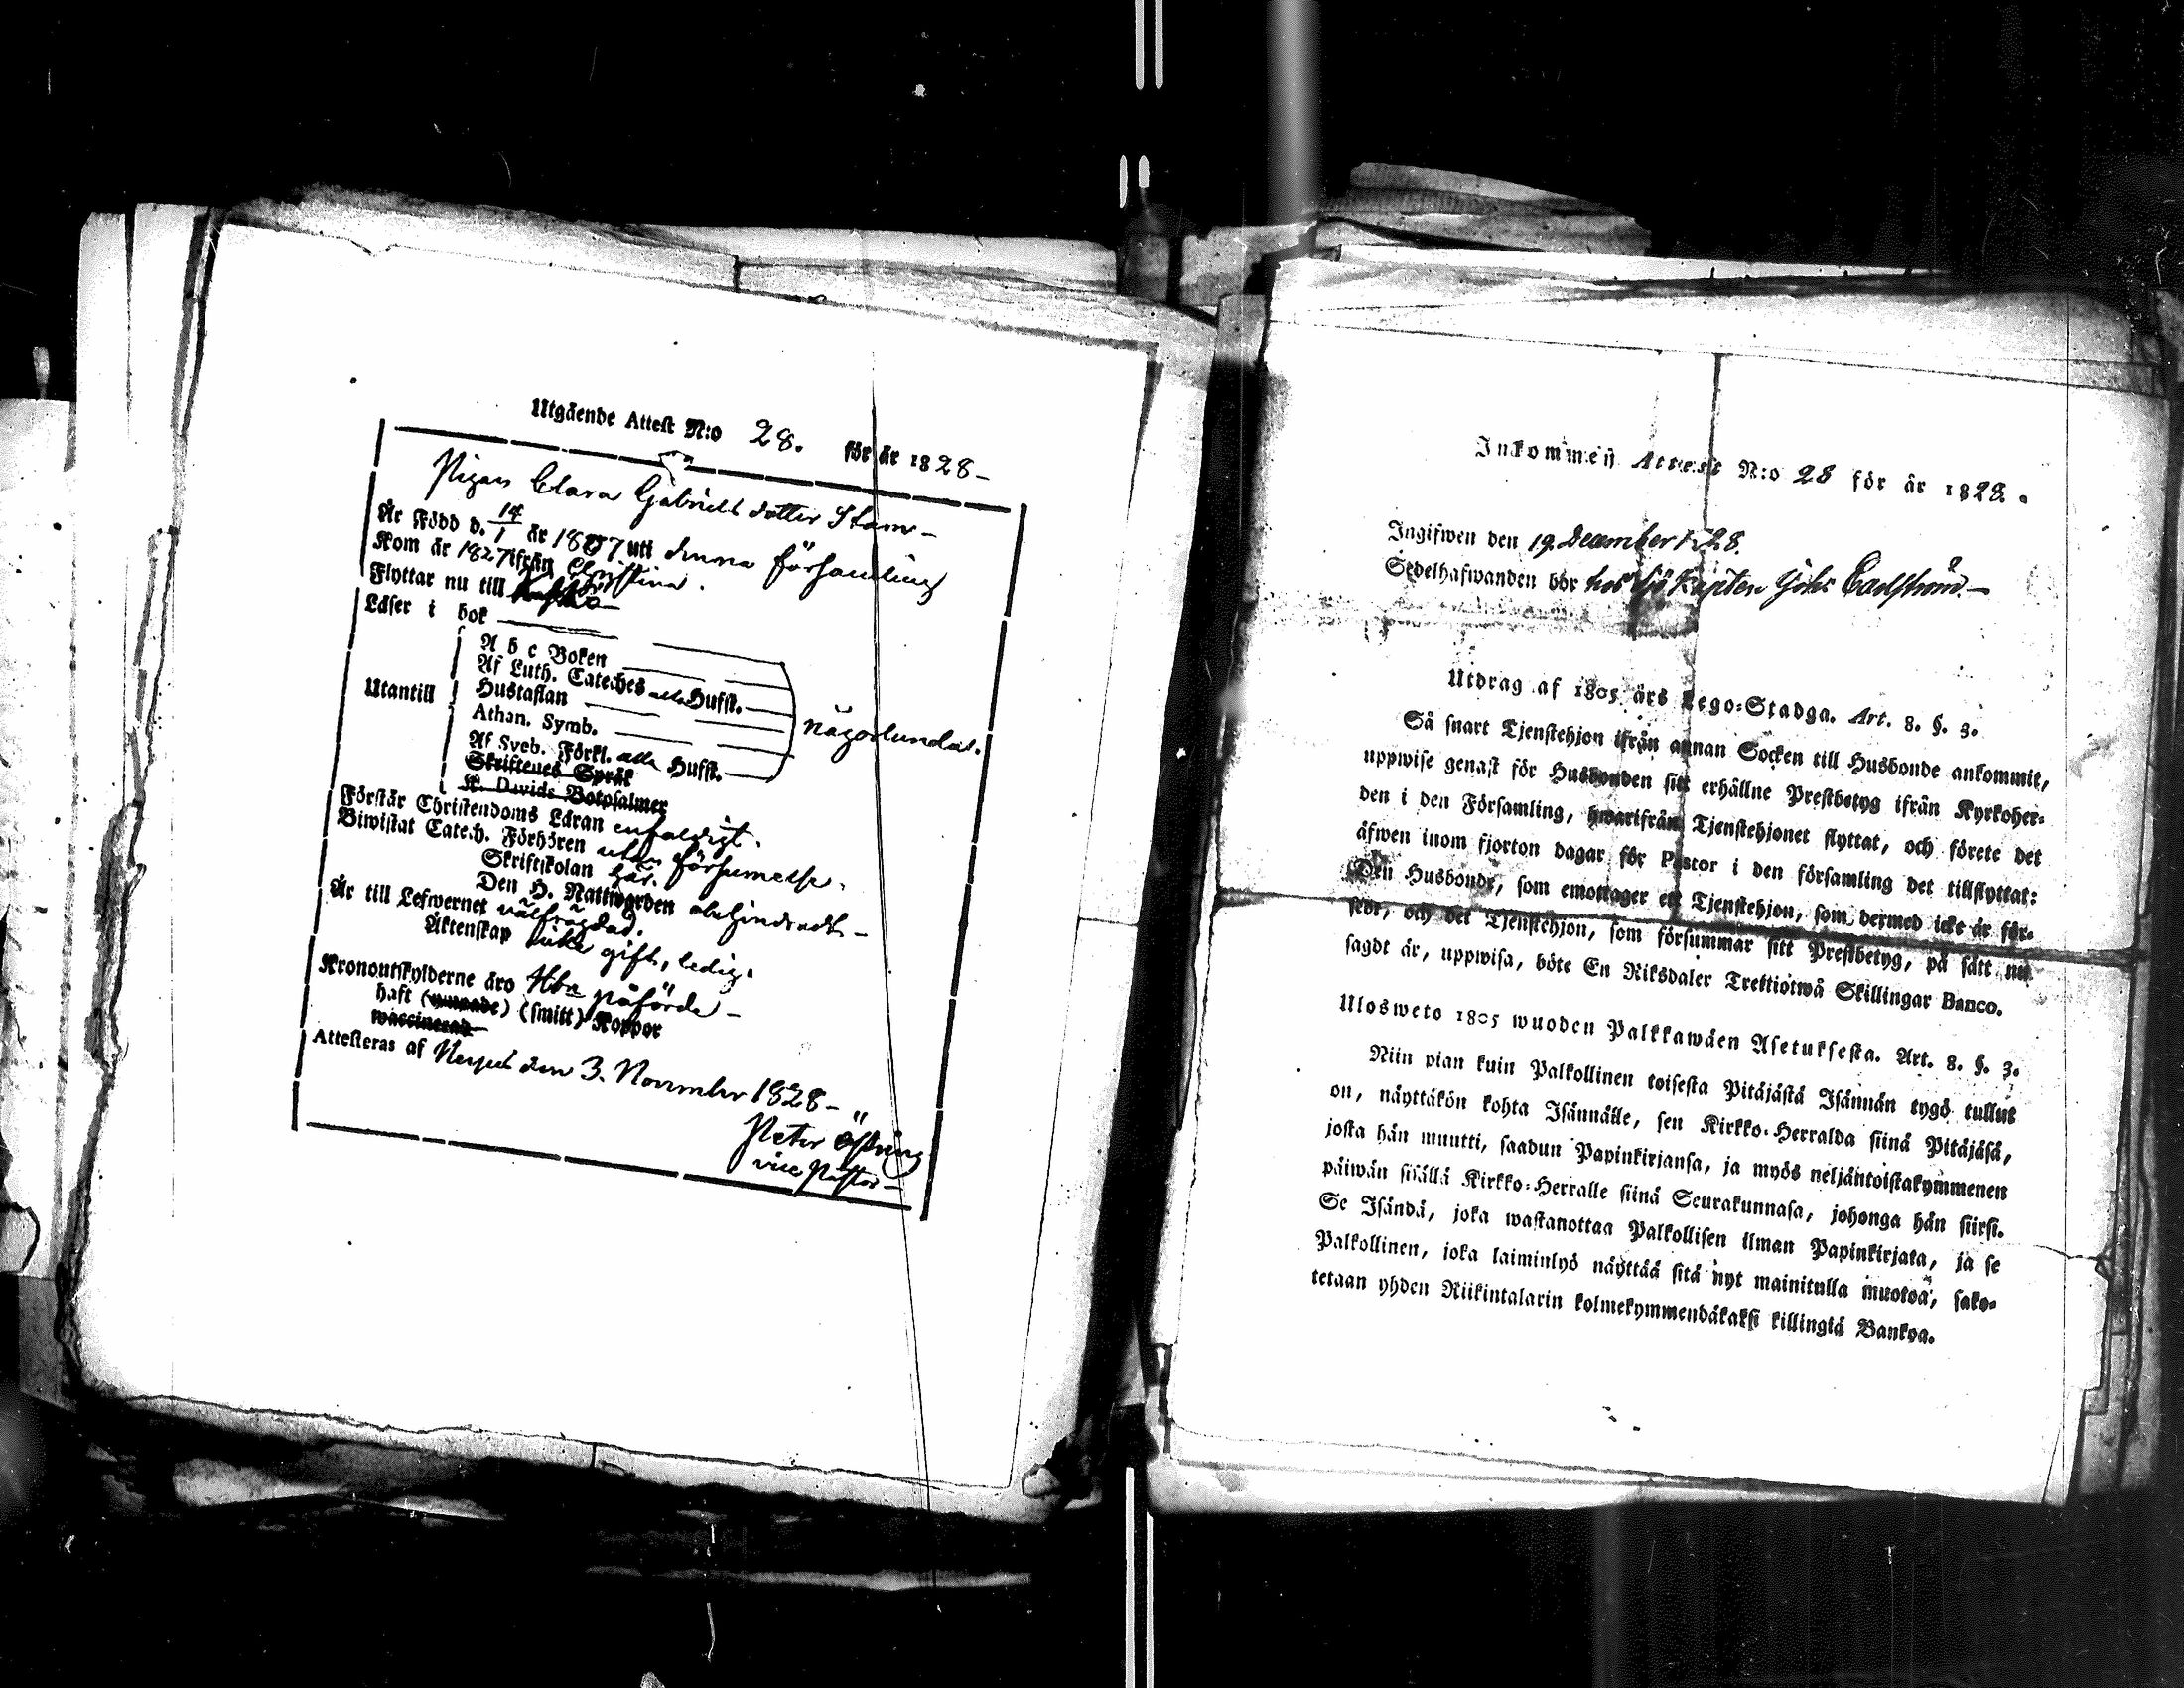 Utgående Attest N:o 28. för år 1828-
Pigan Clara Gabriels dotter Stam-
Är Född d. 14/1 år 1807 uti denna församling
Kom år 1827 ifrån Christina.
Flyttar nu till
Läser i bok
Utantill
A b c Boken
Af Luth. Cateches alla Hufst.
Hustaflan
Athan. Symb.
Af Sveb. Förkl. alla Hufst.
någorlunda.
Skriftenes Språk
K. Davids Botpsalmer
Förstår Christendoms Läran enfaldigt.
Biwistat Catech. Förhören utan försumelse.
Skriftskolan här.
Den H. Nattvarden obehindradt-
Är till Lefwernet välfrägdad.
Äktenskap icke gift, ledig.
Kronoutskylderne äro påförde-
haft (smitt) Koppor
waccinerad
Attesteras af Nerpes den 3. November 1828-
Peter Östring
vice Pastor-
Inkommen Attest N:o 28 för år 1828.
Ingifwen den 19 December 1828.
Sedelhafwanden bör hos Sjö Kapten Carlström.-
Utdrag af 1805 års Lego-Stadga. Art. 8. §. 3.
Så snart Tjenstehjon ifrån annan Socken till Husbonde ankommit,
uppwise genast för Husbonden sitt erhållne Prestbetyg ifrån Kyrkoher-
den i den Församling, hwarifrån Tjenstehjonet flyttat, och förete det
äfwen inom fjorton dagar för Pastor i den församling det tillflyttat:
Den Husbonde, som emottager ett Tjenstehjon, som dermed icke är för-
sedt, och det Tjenstehjon, som försummar sitt Prestbetyg, på sätt nu
sagdt är, uppwisa, böte En Riksdaler Trettiotwå Skillingar Banco.
Ulosweto 1805 wuoden Palkkawäen Asetuksesta. Art. 8. §. 3.
Niin pian kuin Palkollinen toisesta Pitäjästä Isännän tygö tullut
on, näyttäkön kohta Isännälle, sen Kirkko-Herralda siinä Pitäjäsä,
josta hän muutti, saadun Papinkirjansa, ja myös neljäntoistakymmenen
päiwän sisällä Kirkko-Herralle siinä Seurakunnasa, johonga hän siirsi.
Se Isändä, joka wastanottaa Palkollisen ilman Papinkirjata, ja se
Palkollinen, joka laiminlyö näyttää sitä nyt mainitulla muotoa, sako-
tetaan yhden Riikintalarin kolmekymmendäkaksi killingiä Bankoa.